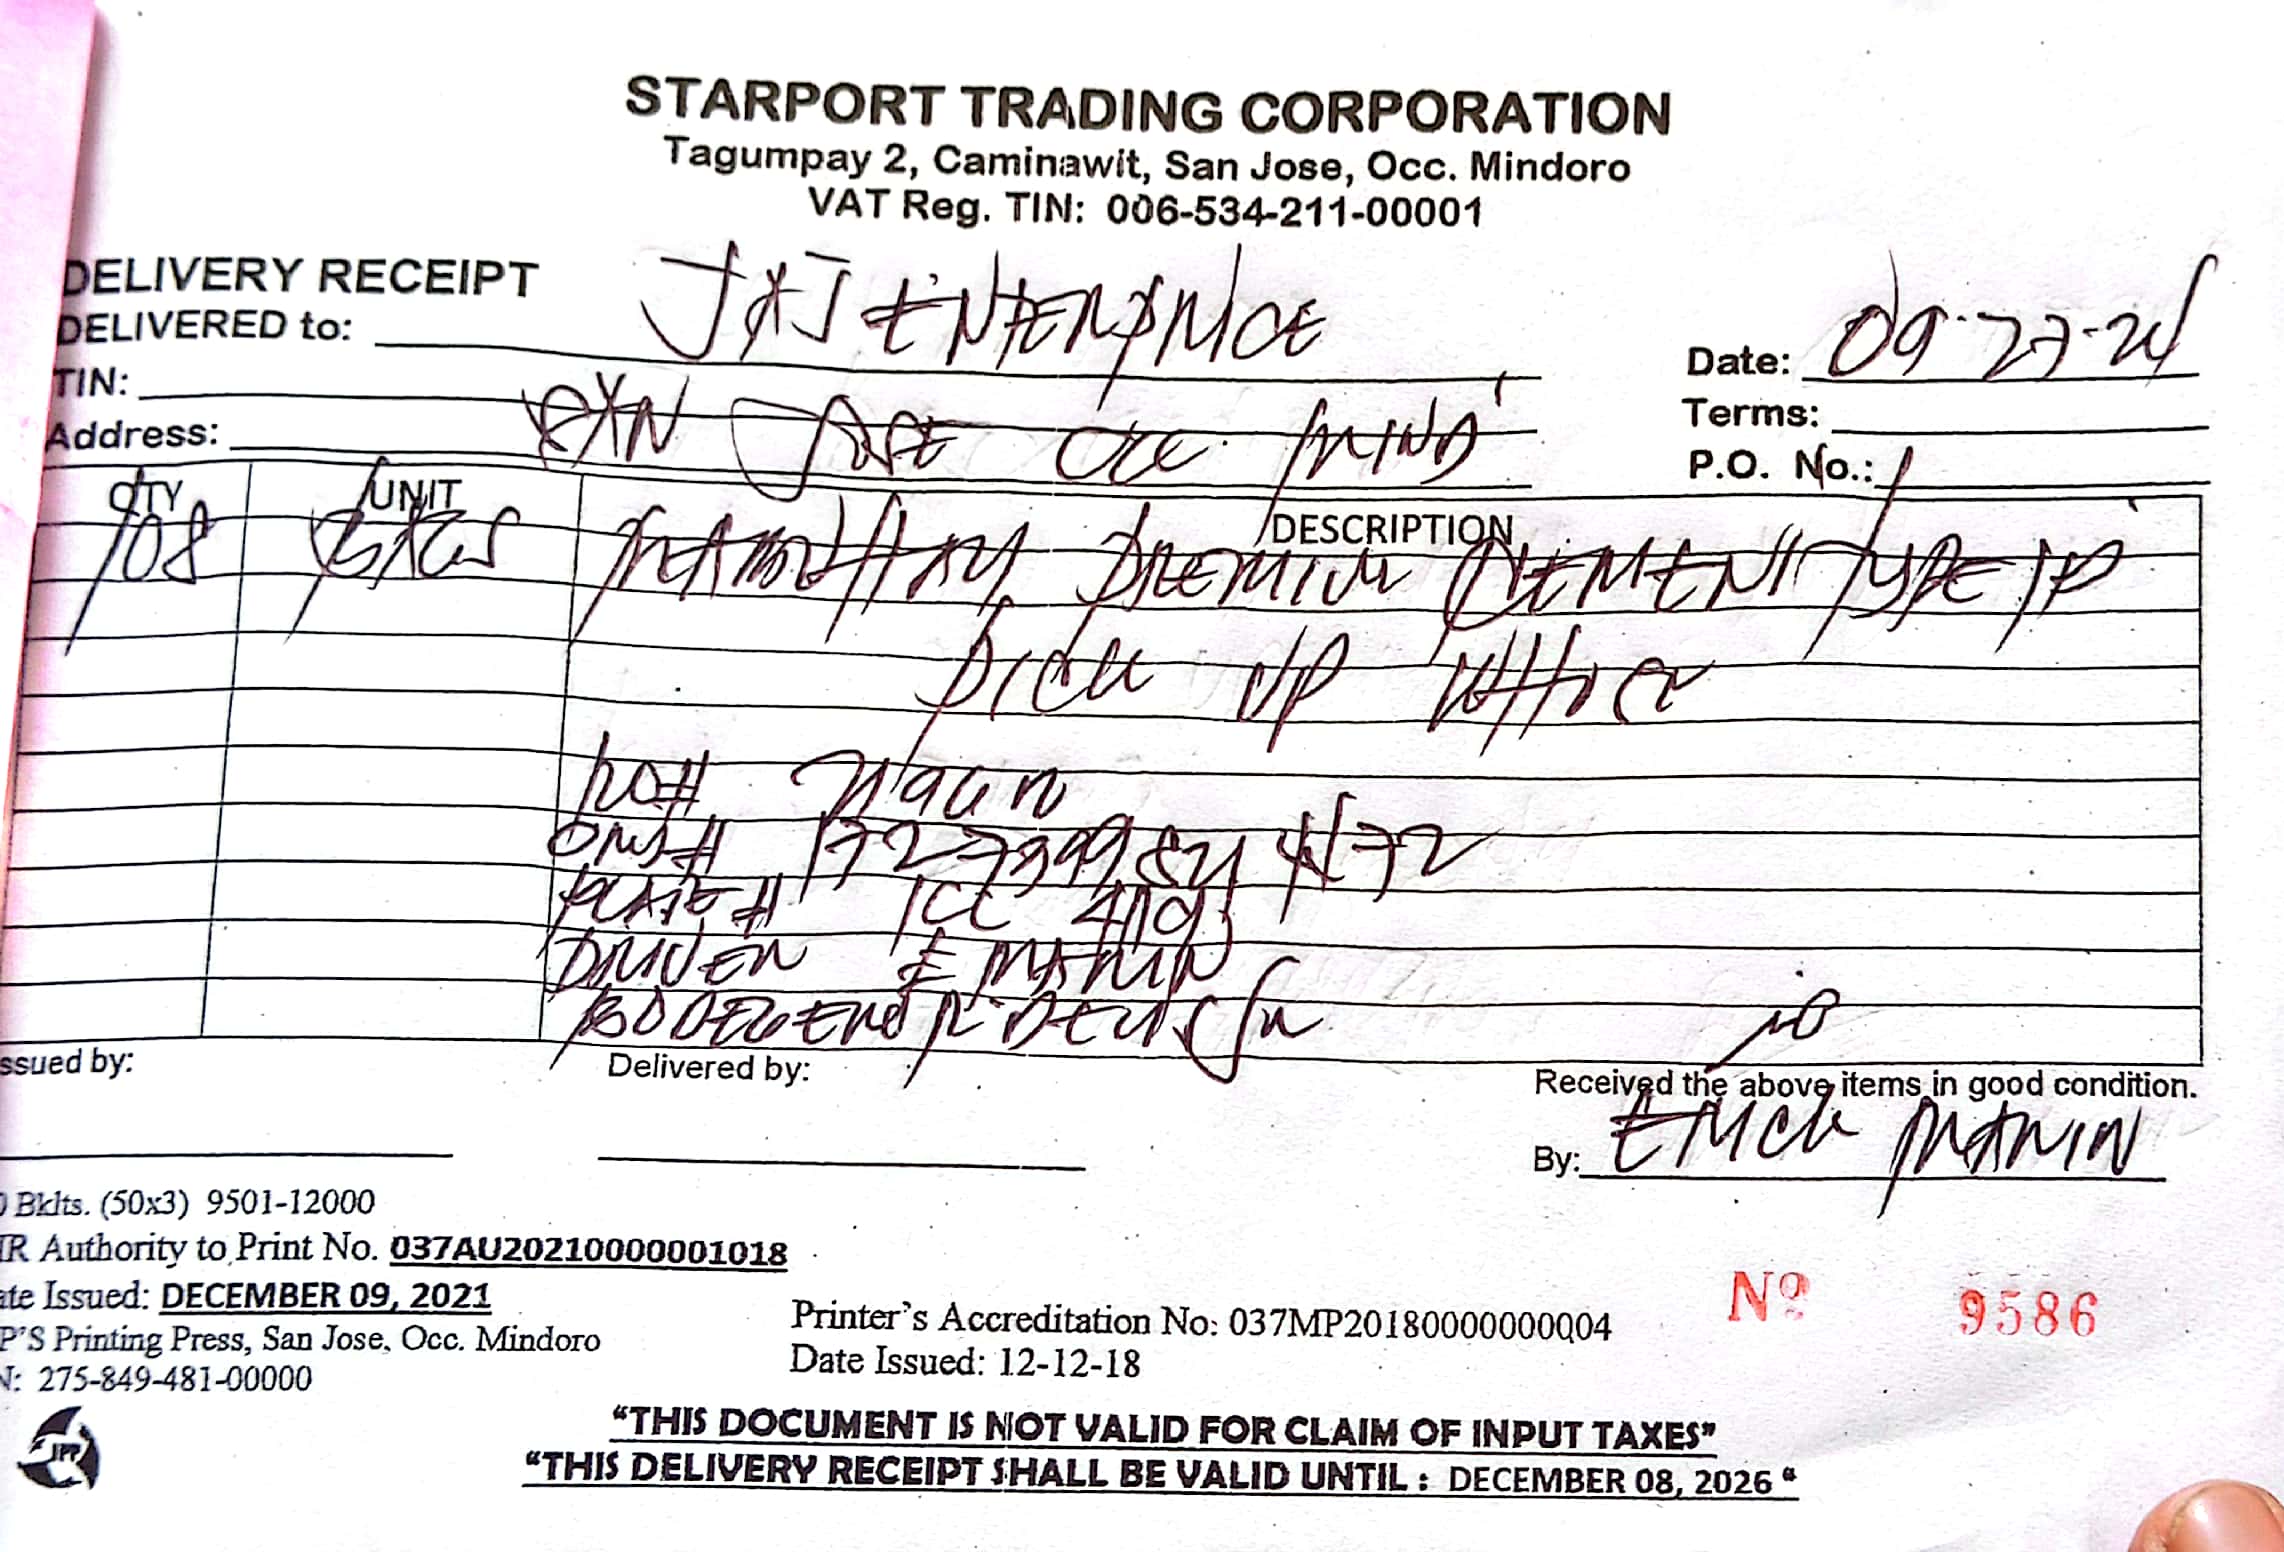 STARPORT TRADING CORPORATION
Tagumpay 2, Caminawit, San Jose, Occ. Mindoro
VAT Reg. TIN: 006-534-211-00001
DELIVERY RECEIPT
DELIVERED to: J&J ENTERPRICE
Date: 09-27-24
TIN:
Terms:
Address: SAN JOSE OCC. MIND
P.O. No.:
QTY UNIT DESCRIPTION
108 BAGS PREMIUM CEMENT TYPE 1P
PICK UP
PLATE #
DRIVER E MARIN
Issued by:
Delivered by:
Received the above items in good condition.
By: ERICK MARIN
Bklts. (50x3) 9501-12000
Authority to Print No. 037AU20210000001018
Issued: DECEMBER 09, 2021
P'S Printing Press, San Jose, Occ. Mindoro
: 275-849-481-00000
Printer's Accreditation No: 037MP20180000000004
Date Issued: 12-12-18
Nº 9586
JPP
"THIS DOCUMENT IS NOT VALID FOR CLAIM OF INPUT TAXES"
"THIS DELIVERY RECEIPT SHALL BE VALID UNTIL : DECEMBER 08, 2026 "